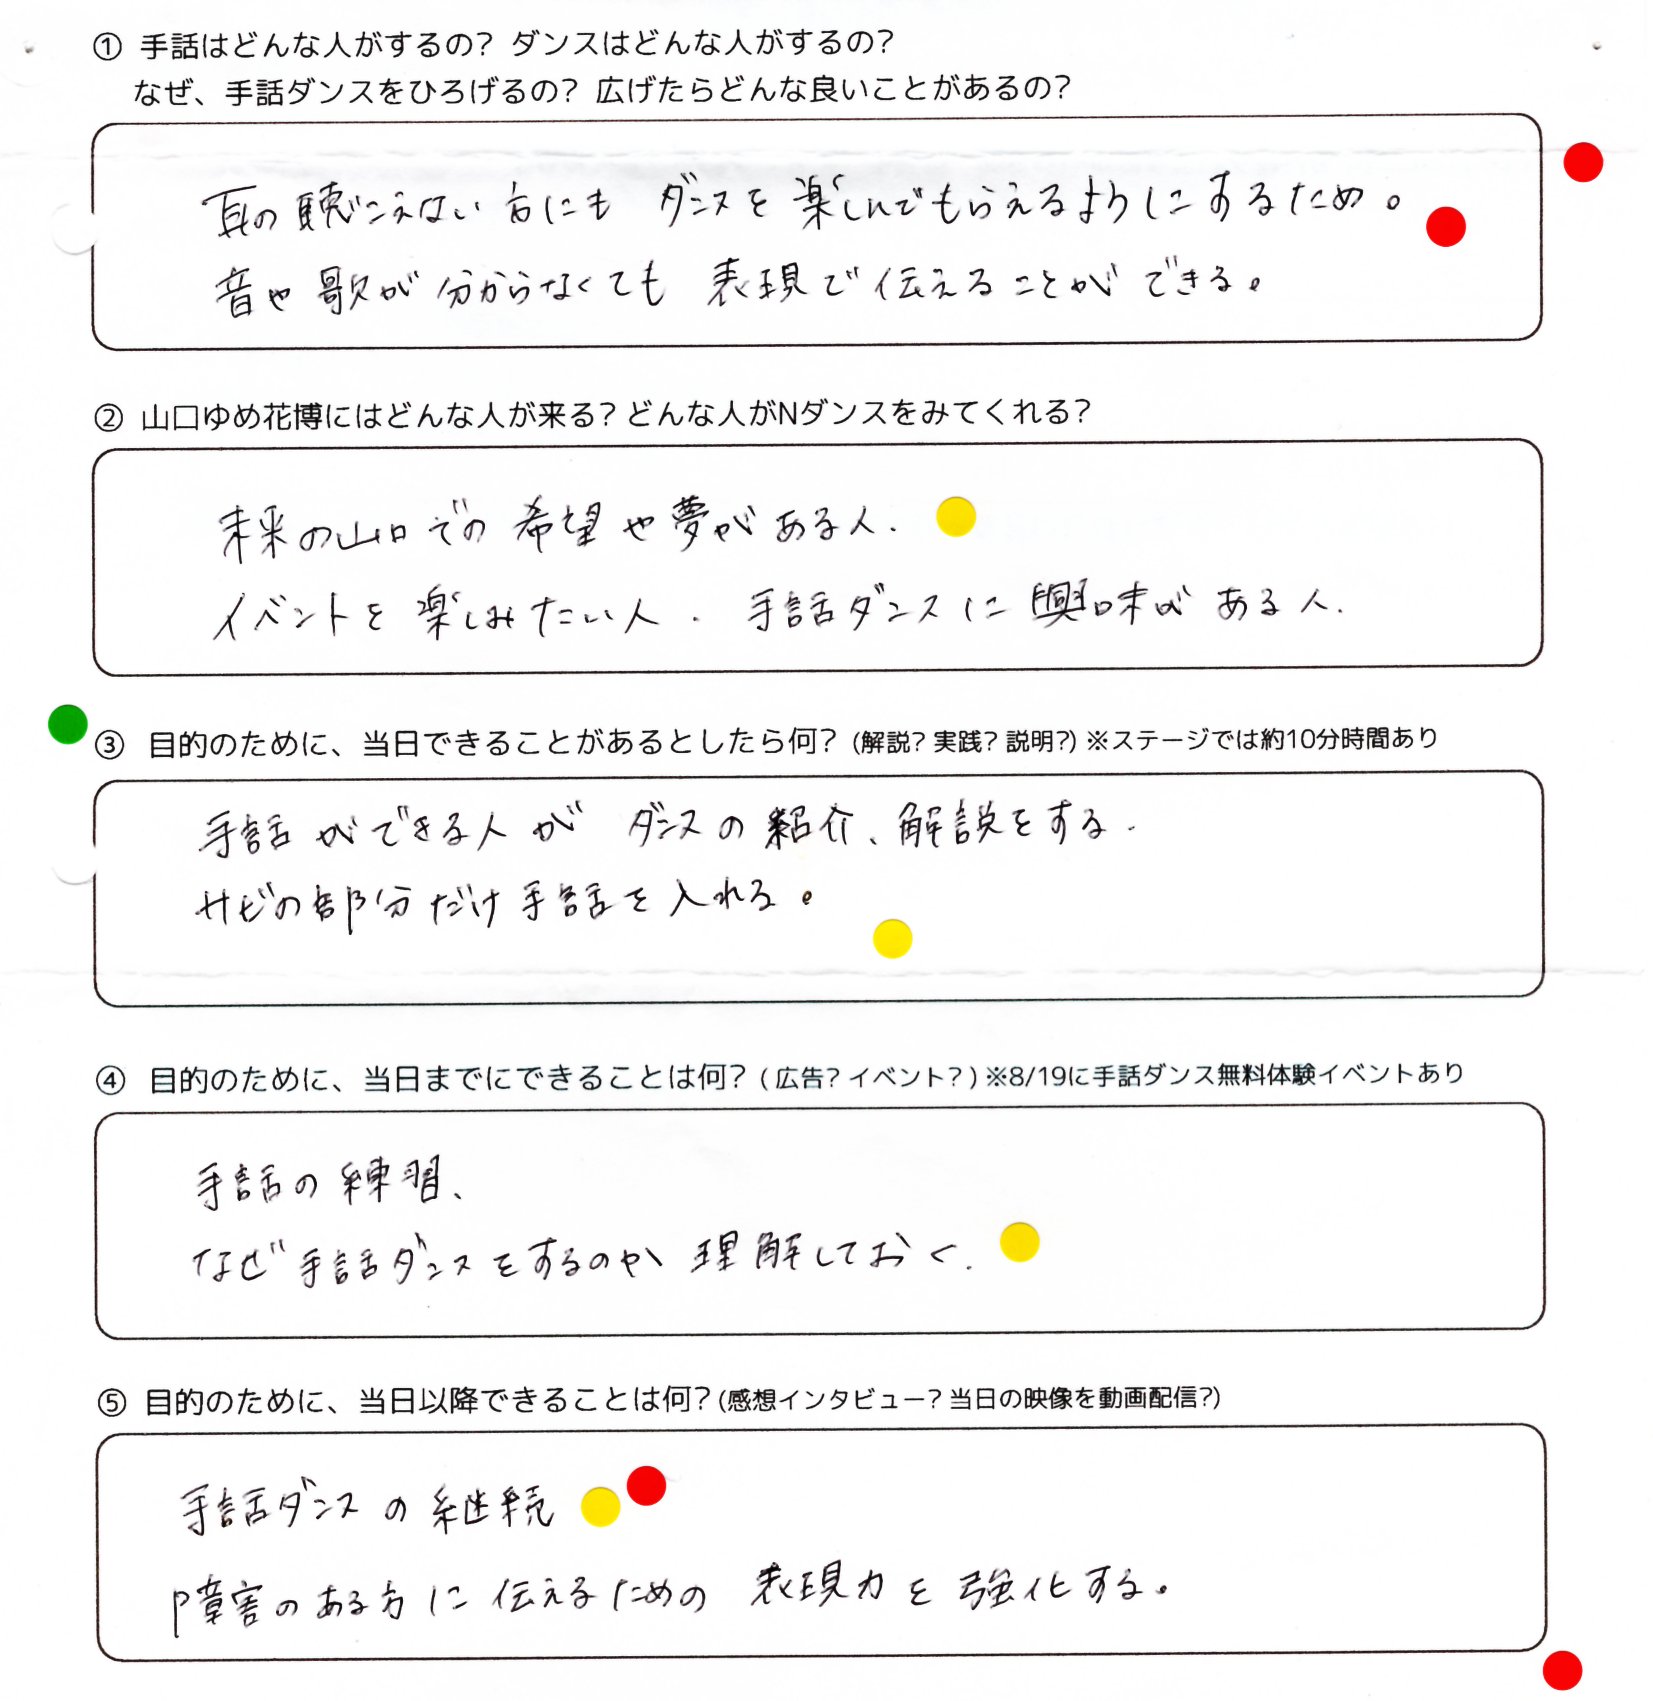 ① 手話はどんな人がするの? ダンスはどんな人がするの?
なぜ、手話ダンスをひろげるの? 広げたらどんな良いことがあるの?
耳の聴こえない方にも ダンスを楽しんでもらえるようにするため。
音や歌が分からなくても 表現で伝えることができる。
② 山口ゆめ花博にはどんな人が来る? どんな人がNダンスをみてくれる?
未来の山口での希望や夢がある人.
イベントを楽しみたい人. 手話ダンスに興味がある人.
③ 目的のために、当日できることがあるとしたら何? (解説? 実践? 説明?) ※ステージでは約10分時間あり
手話ができる人が ダンスの紹介、解説をする.
サビの部分だけ手話を入れる。
④ 目的のために、当日までにできることは何? ( 広告? イベント? ) ※8/19に手話ダンス無料体験イベントあり
手話の練習、
なぜ手話ダンスをするのか 理解しておく.
⑤ 目的のために、当日以降できることは何? (感想インタビュー? 当日の映像を動画配信?)
手話ダンスの継続
障害のある方に伝えるための 表現力を強化する。